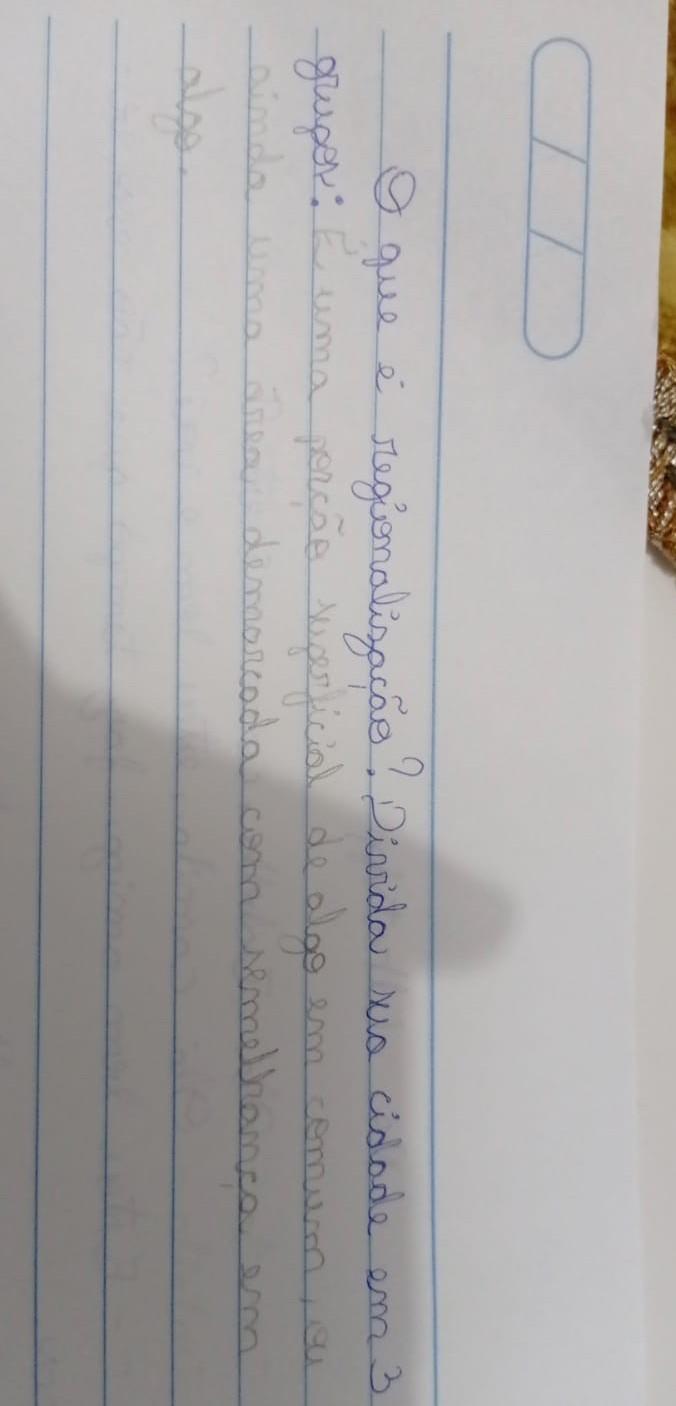 O que é regionalização? Divida sua cidade em 3
grupos: É uma porção superficial de algo em comum, ou
ainda uma área demarcada com semelhança em
algo.